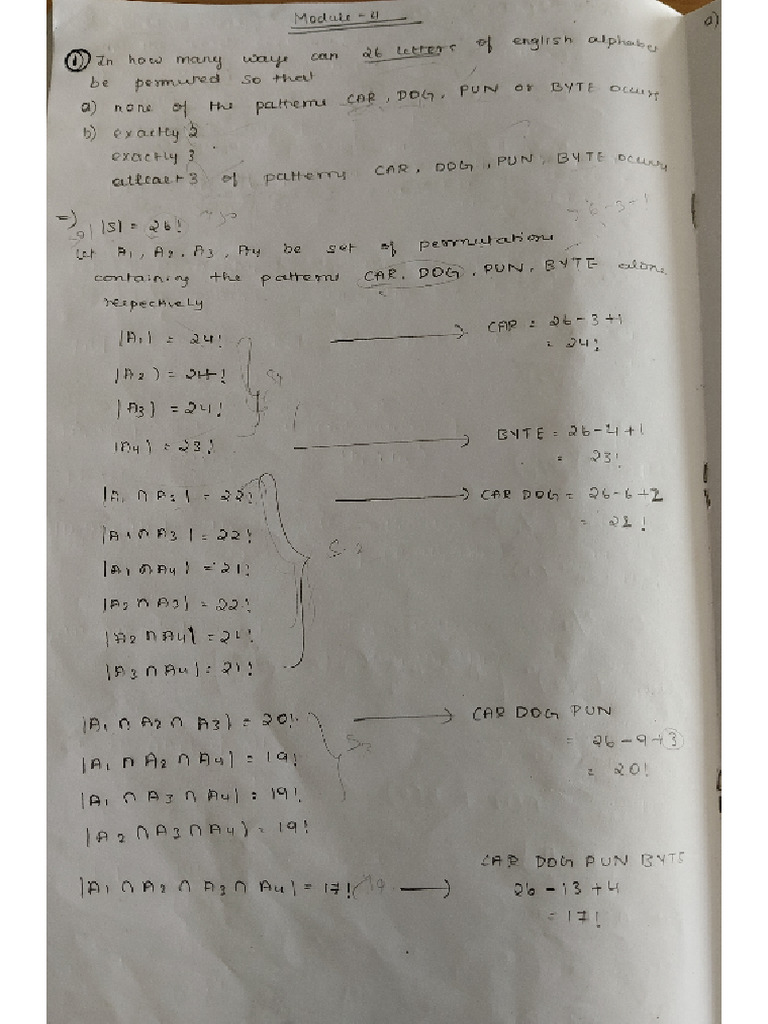 Module - 4
a)
① In how many ways can 26 letters of english alphabet
be permuted so that
a) none of the patterns CAR, DOG, PUN or BYTE occurs
b) exactly 2
exactly 3
atleast 3 of patterns CAR, DOG, PUN, BYTE occurs
=) |S| = 26!
26-3-1
Let A1, A2, A3, A4 be set of permutations
containing the patterns CAR, DOG, PUN, BYTE alone
respectively
|A1| = 24! → CAR = 26-3+1
= 24!
|A2) = 24!
|A3) = 24!
|A4) = 23! → BYTE = 26-4+1
= 23!
S1
|A1 ∩ A2| = 22! → CAR DOG = 26-6+2
= 22!
|A1 ∩ A3| = 22!
|A1 ∩ A4| = 21!
S2
|A2 ∩ A3| = 22!
|A2 ∩ A4| = 21!
|A3 ∩ A4| = 21!
|A1 ∩ A2 ∩ A3| = 20! → CAR DOG PUN
= 26-9+3
= 20!
|A1 ∩ A2 ∩ A4| = 19!
|A1 ∩ A3 ∩ A4| = 19!
|A2 ∩ A3 ∩ A4) = 19!
|A1 ∩ A2 ∩ A3 ∩ A4| = 17! → CAR DOG PUN BYTE
26-13+4
= 17!